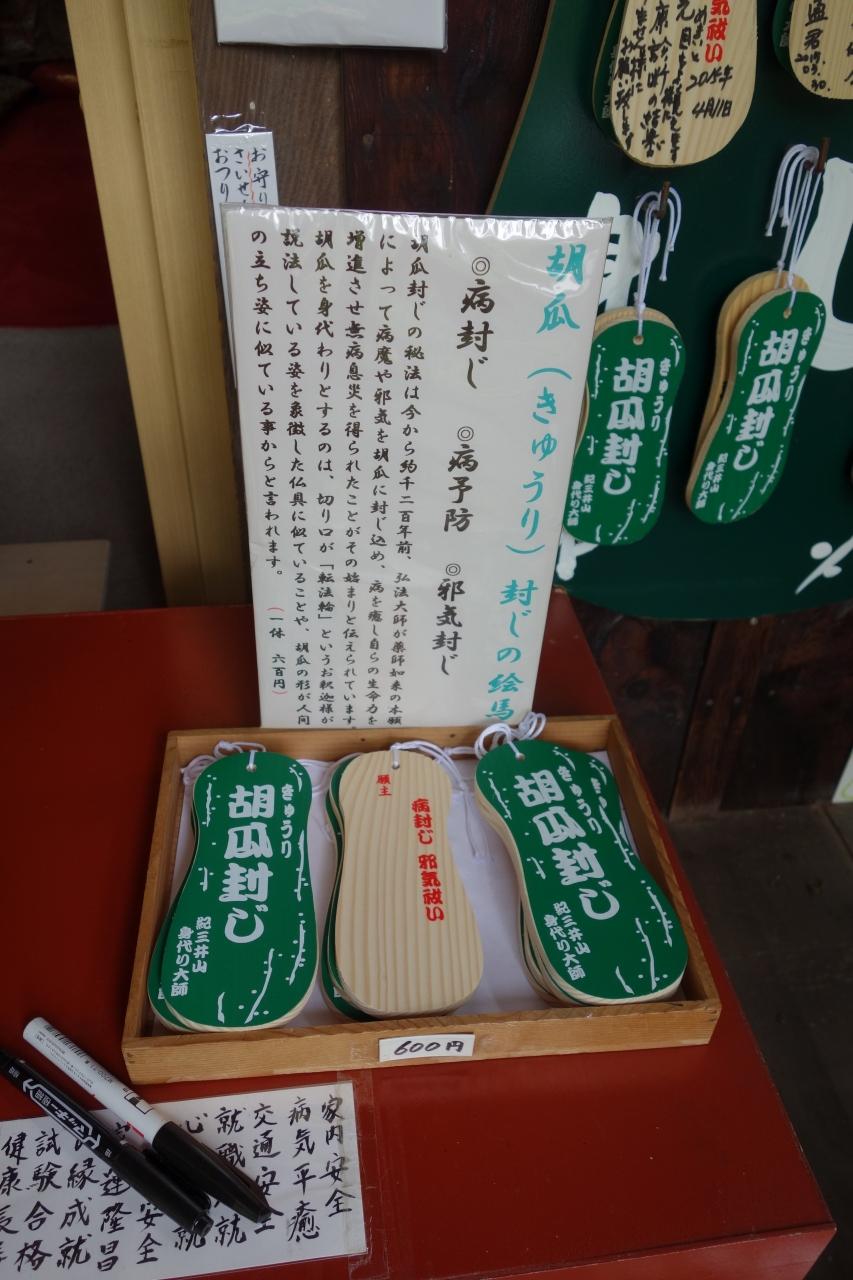 胡瓜（きゅうり）封じの絵馬
◎病封じ　◎病予防　◎邪気封じ
胡瓜封じの秘法は今から約千二百年前、弘法大師が薬師如来の本願
によって病魔や邪気を胡瓜に封じ込め、病を癒し自らの生命力を
増進させ無病息災を得られたことがその始まりと伝えられています
胡瓜を身代わりとするのは、切り口が「転法輪」というお釈迦様が
説法している姿を象徴した仏具に似ていることや、胡瓜の形が人間
の立ち姿に似ている事からと言われます。
（一体　六百円）
お守り
さいせ
おつり
気祓い
2015年
4月11日
きゅうり
胡瓜封じ
紀三井山
身代り大師
きゅうり
胡瓜封じ
紀三井山
身代り大師
きゅうり
胡瓜封じ
紀三井山
身代り大師
願主
病封じ 邪気祓い
きゅうり
胡瓜封じ
紀三井山
身代り大師
600円
家内安全
病気平癒
交通安全
就職
就
心
安全
運隆昌
縁成就
試験合格
健康長